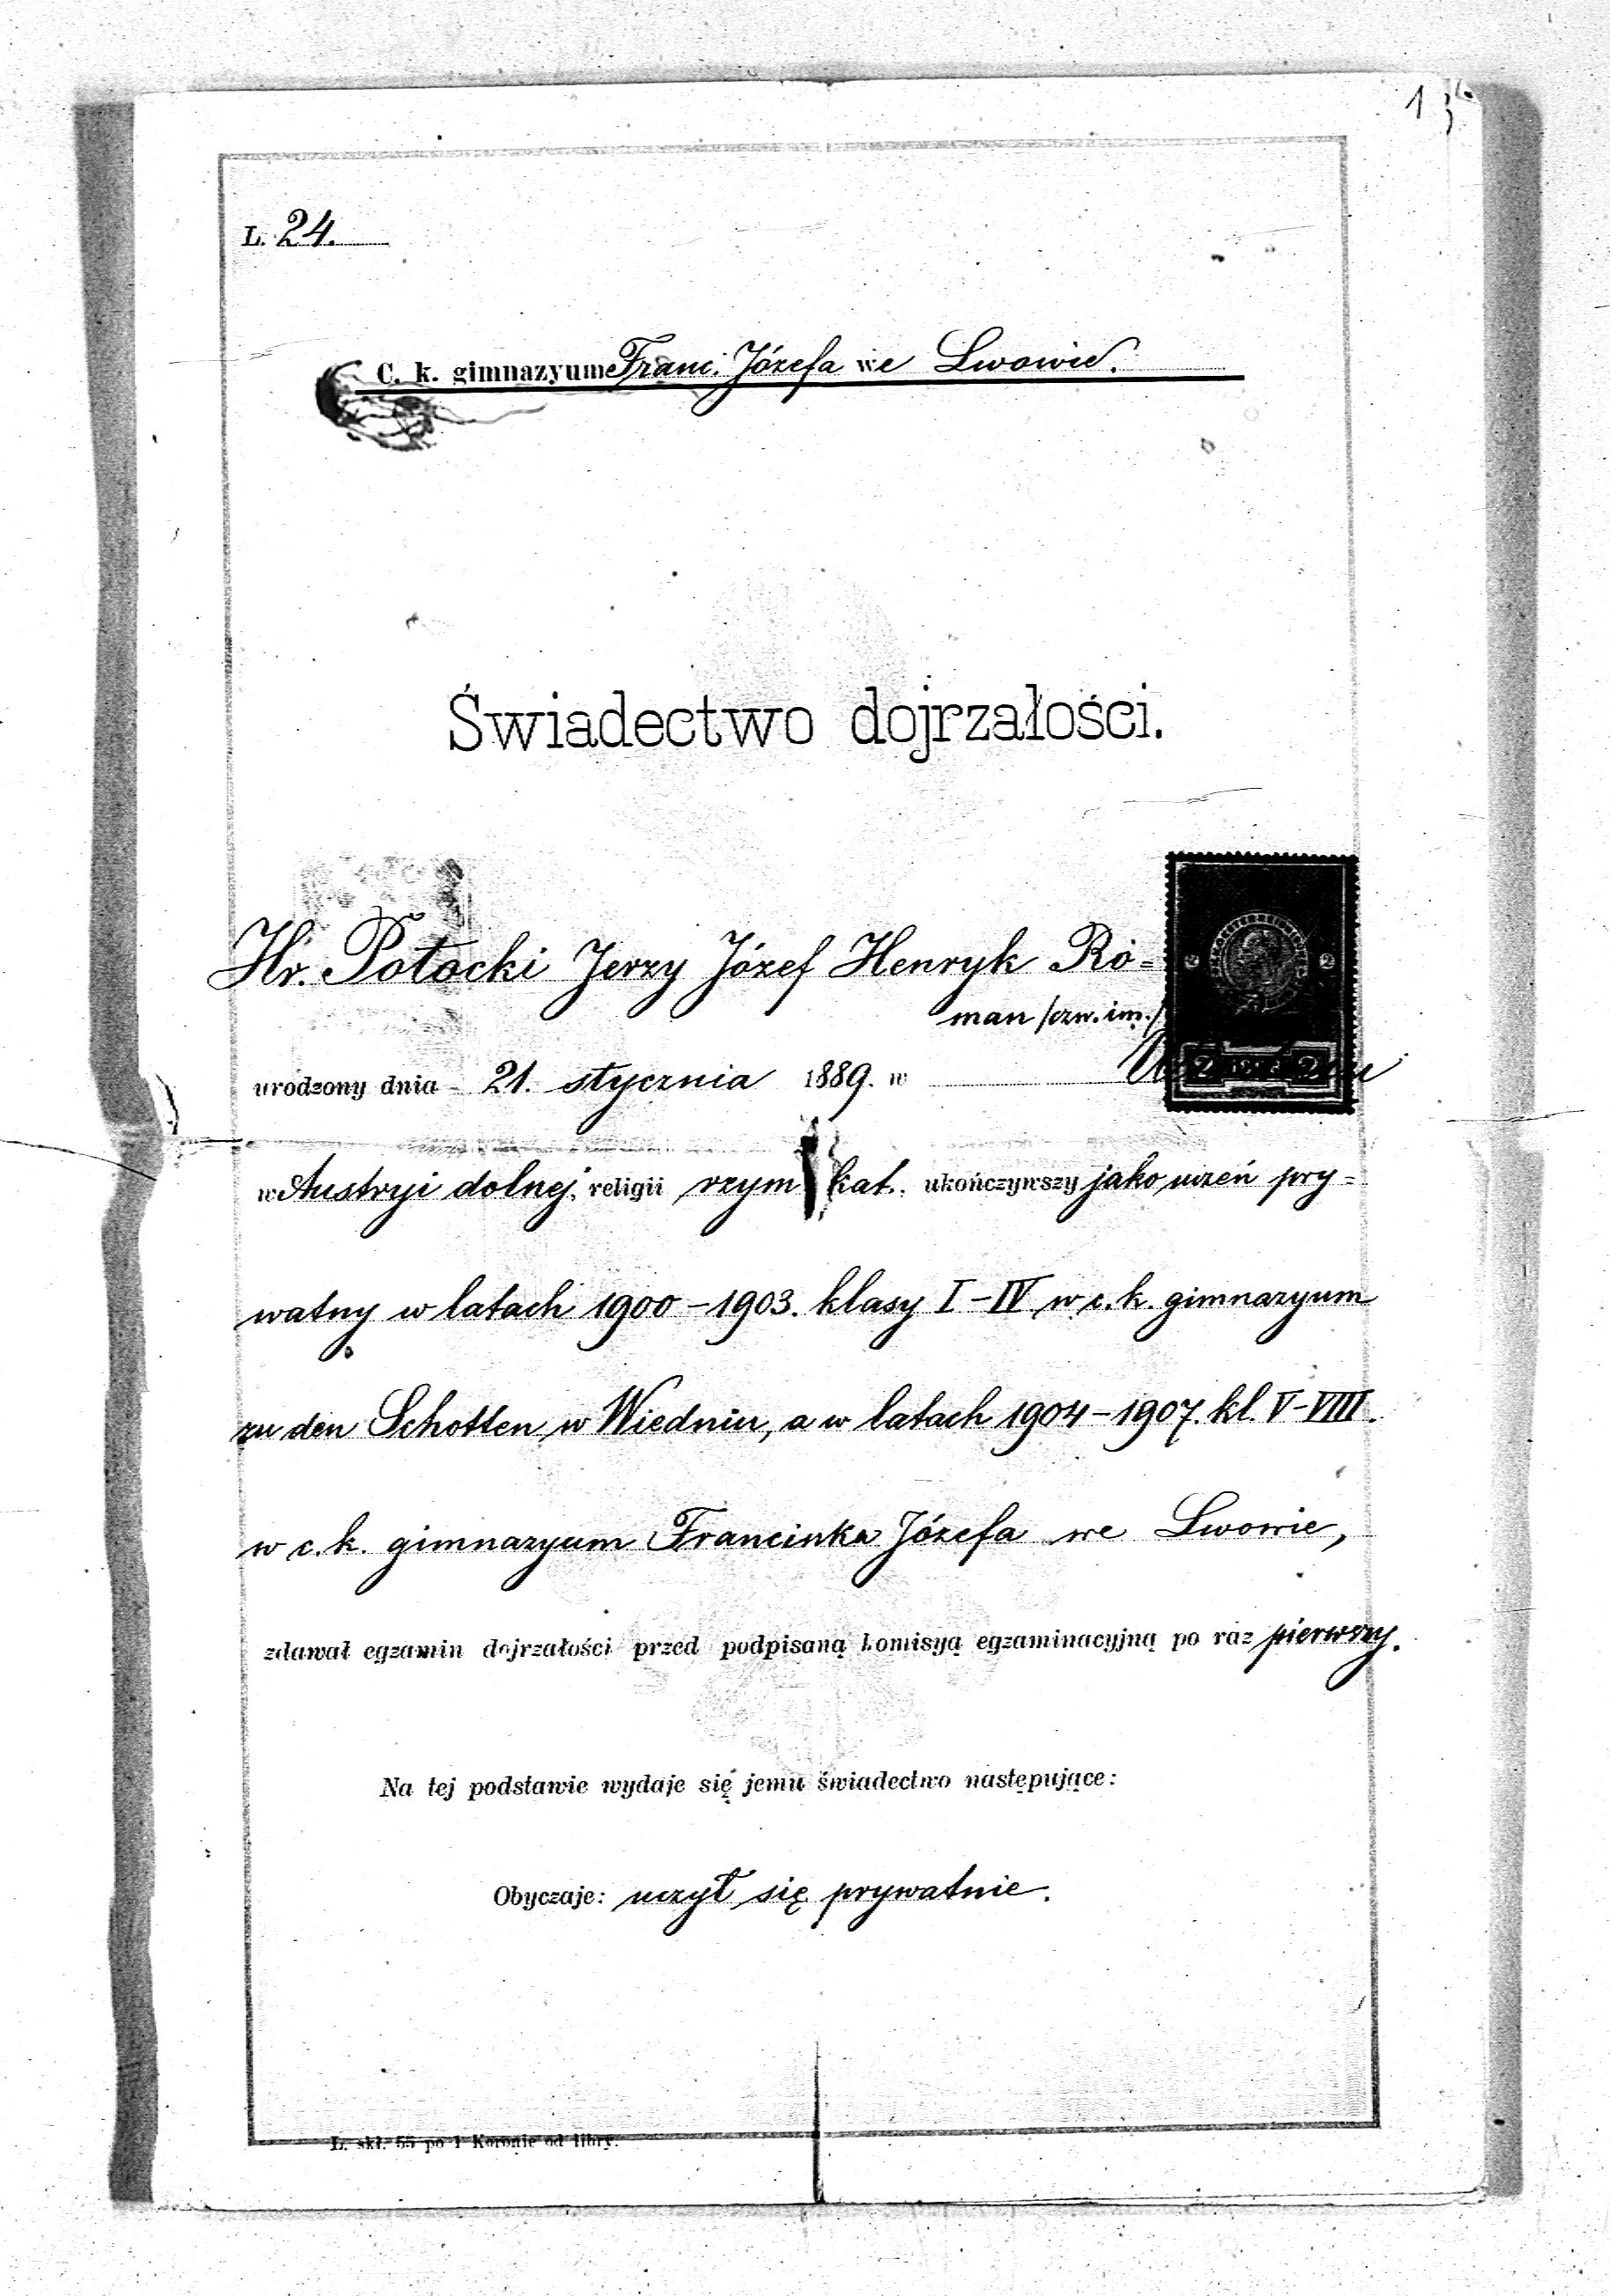 1
L. 24.
C. k. gimnazyum Franc. Józefa we Lwowie.
Świadectwo dojrzałości.
Hr. Potocki Jerzy Józef Henryk Ro=
man /czw. im./
urodzony dnia 21. stycznia 1889. w
2 2
2 2
w Austryi dolnej, religii rzym kat., ukończywszy jako uczeń pry=
watny w latach 1900-1903. klasy I-IV w c. k. gimnazyum
zu den Schotten w Wiedniu, a w latach 1904-1907. kl. V-VIII.
w c. k. gimnazyum Franciszka Józefa we Lwowie,
zdawał egzamin dojrzałości przed podpisaną komisyą egzaminacyjną po raz pierwszy.
Na tej podstawie wydaje się jemu świadectwo następujące:
Obyczaje: uczył się prywatnie.
L. skł. 55 po 1 Koronie od libry.